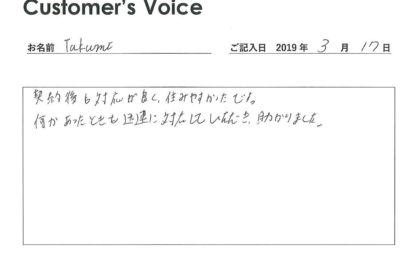 Customer's Voice
お名前 Takumi ご記入日 2019年 3月 17日
契約後も対応が良く、住みやすかったです。
何かあったときも迅速に対応していただき、助かりました。